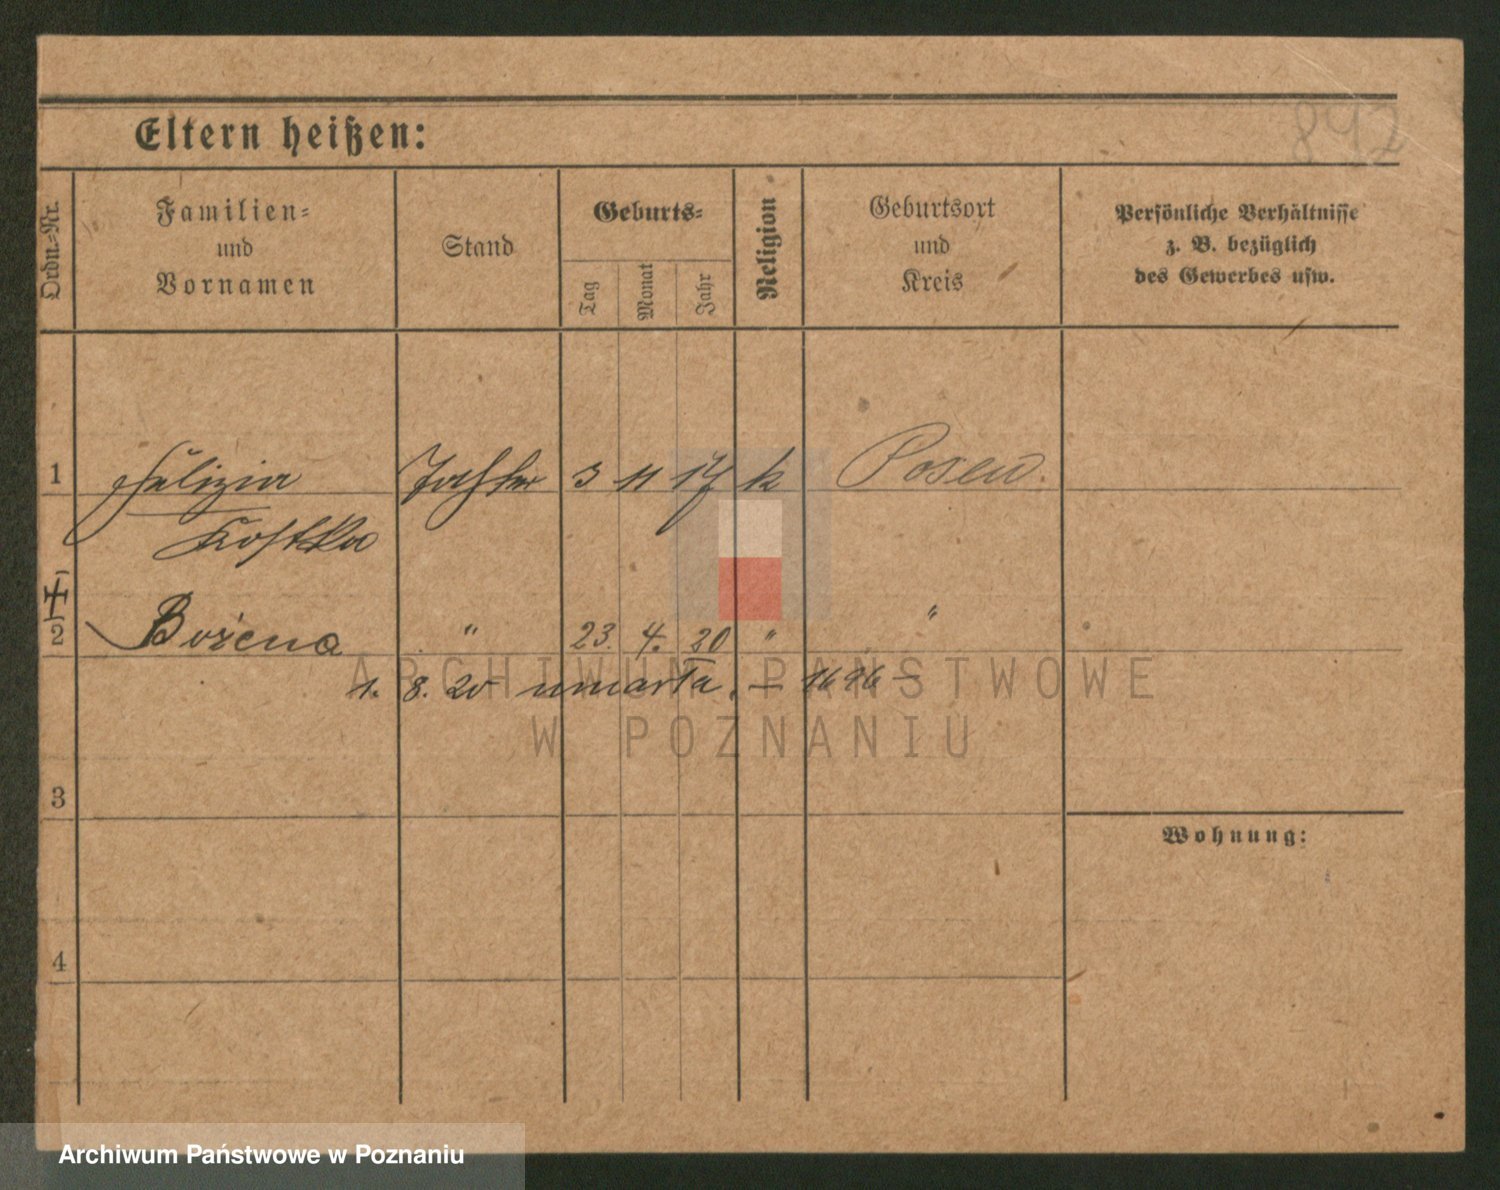 892
Eltern heißen:
Ordn.=Nr.
Familien=
und
Vornamen
Stand
Geburts=
Tag
Monat
Jahr
Religion
Geburtsort
und
Kreis
Persönliche Verhältnisse
z. B. bezüglich
des Gewerbes usw.
1 Felizia Tochter 3 11 17 k Posen.
Kostka
2 Bożena " 23. 4. 20 " "
1. 8. 20 umarta. — 1696 —
ARCHIWUM PAŃSTWOWE
W POZNANIU
3
Wohnung:
4
Archiwum Państwowe w Poznaniu